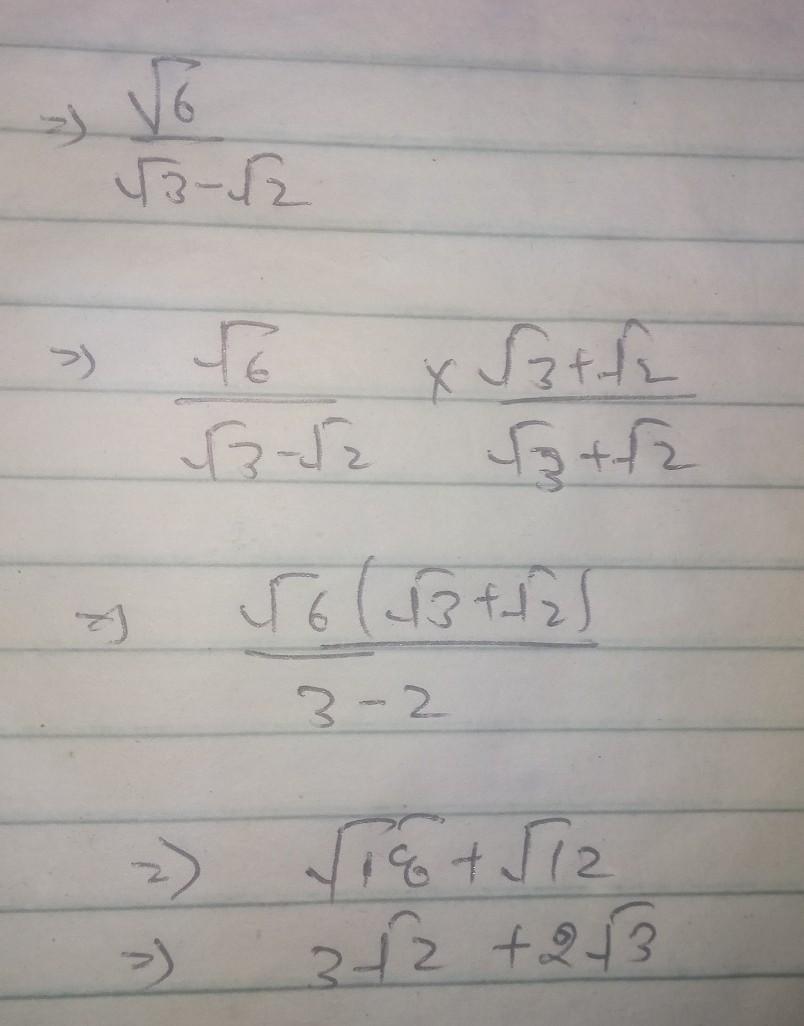 => √6
√3-√2
=> √6 × √3+√2
√3-√2 √3+√2
=> √6(√3+√2)
3-2
=> √18+√12
=> 3√2 +2√3